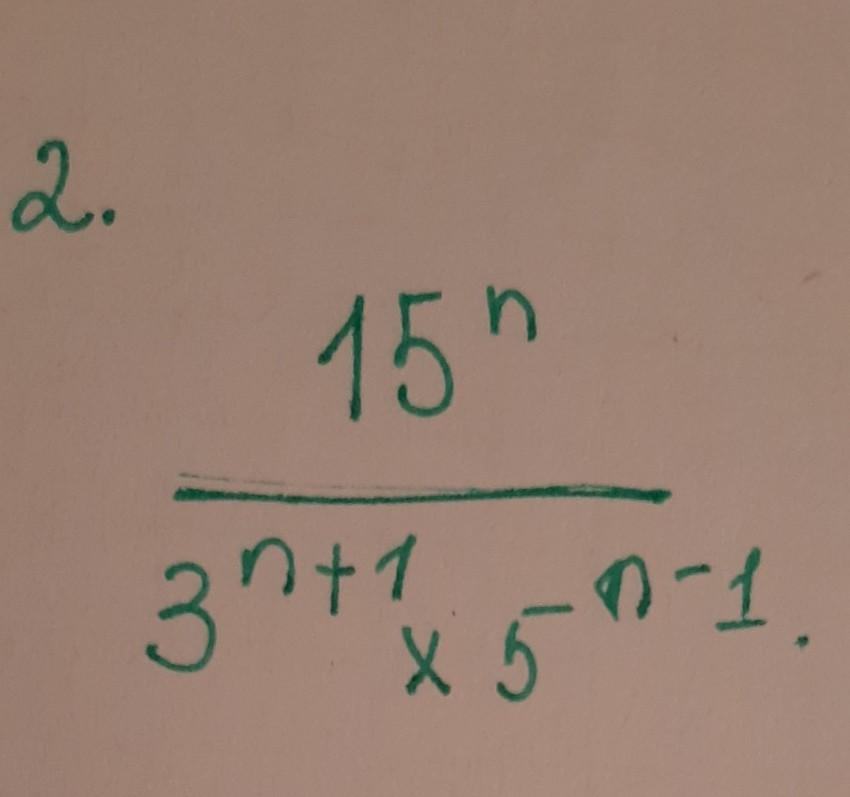 2.
15^n
3^{n+1} x 5^{n-1}.